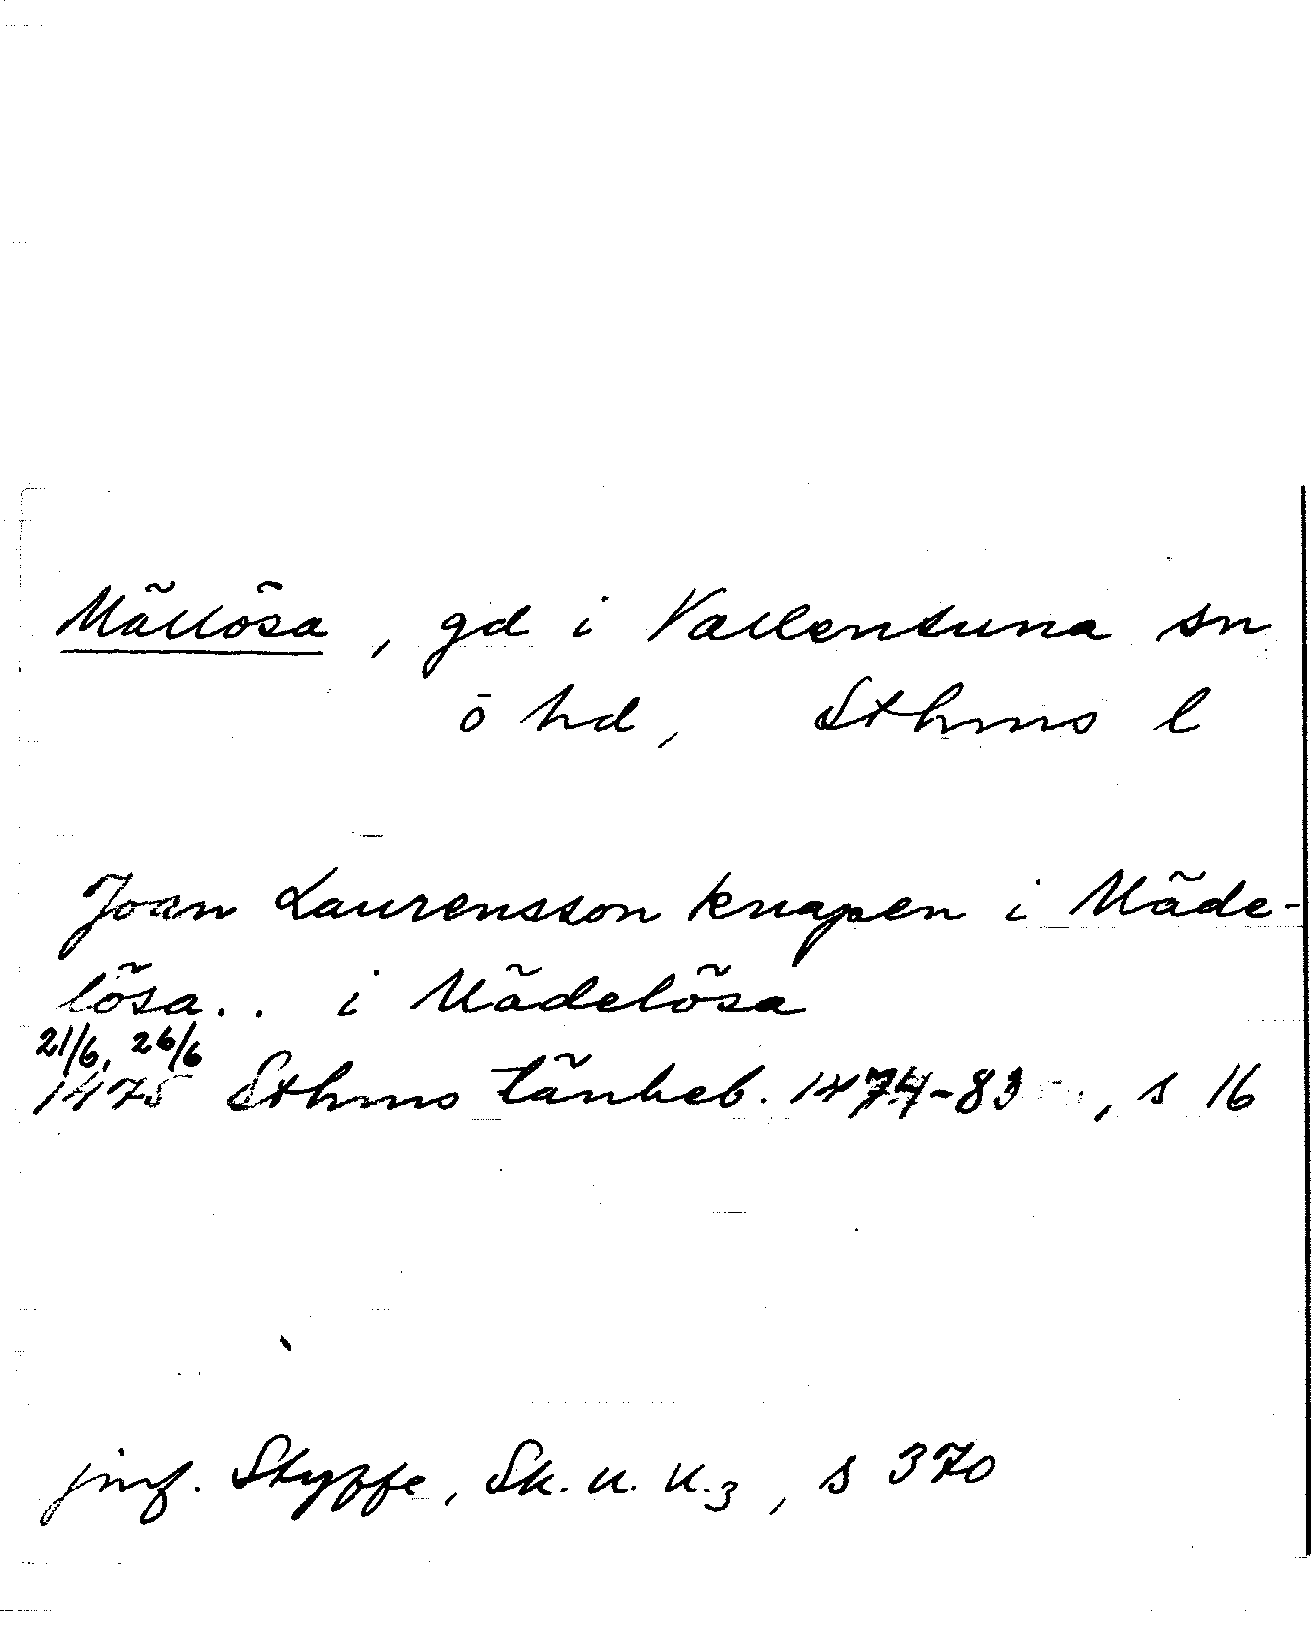 Mällösa, gd i Vallentuna sn
ö hd, Sthms l
Joan Laurensson knapen i Mäde-
lösa.. i Mädelösa
21/6, 26/6
1475 Sthms tänkeb. 1474-83, s 16
jmf. Styffe, Sk. u. u.3, s 370